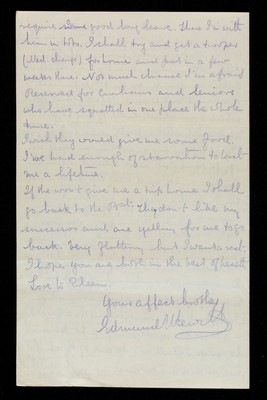 require some good long leave. Thus I'm with
him in this. I shall try and get a trooper
(Med cheap) for home and put in a few
weeks there. Not much chance I'm afraid
Reserved for Casinoires and Seniors
who have squatted in one place the whole
time.
I wish they would give me some food.
I've had enough of starvation to last
me a lifetime.
If they won't give me a trip home I shall
go back to the Regt. They don't like my
successor and are yelling for me to go
back. Very flattering but I want a rest.
I hope you are both in the best of health
Love to Eileen.
Your affect brother
Edmund